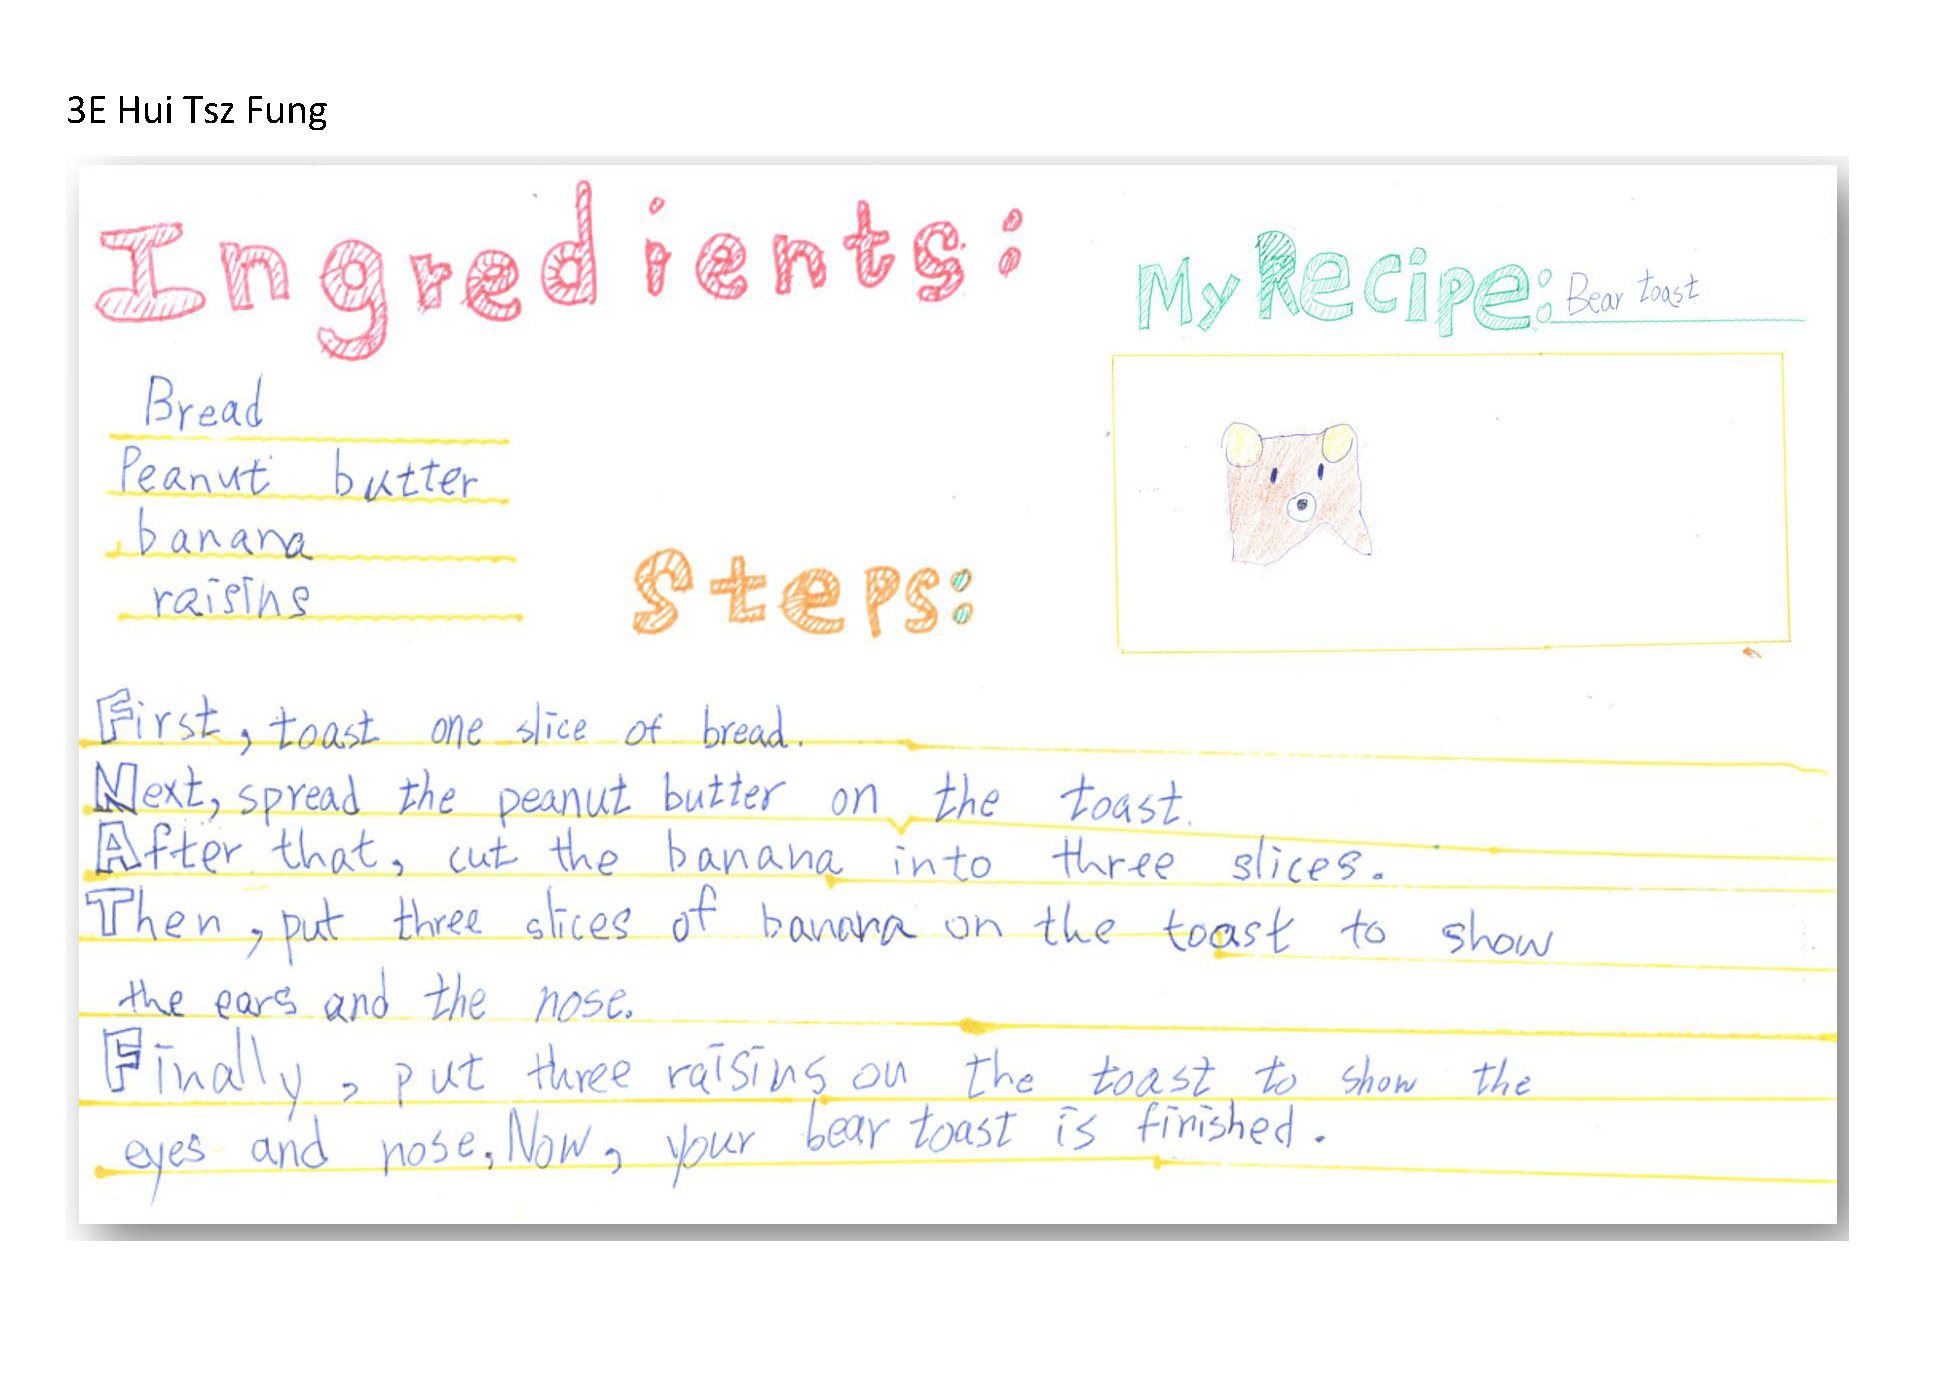 3E Hui Tsz Fung
Ingredients:
Bread
Peanut butter
banana
raisins
My Recipe: Bear toast
Steps:
First, toast one slice of bread.
Next, spread the peanut butter on the toast.
After that, cut the banana into three slices.
Then, put three slices of banana on the toast to show
the ears and the nose.
Finally, put three raisins on the toast to show the
eyes and nose, Now, your bear toast is finished.